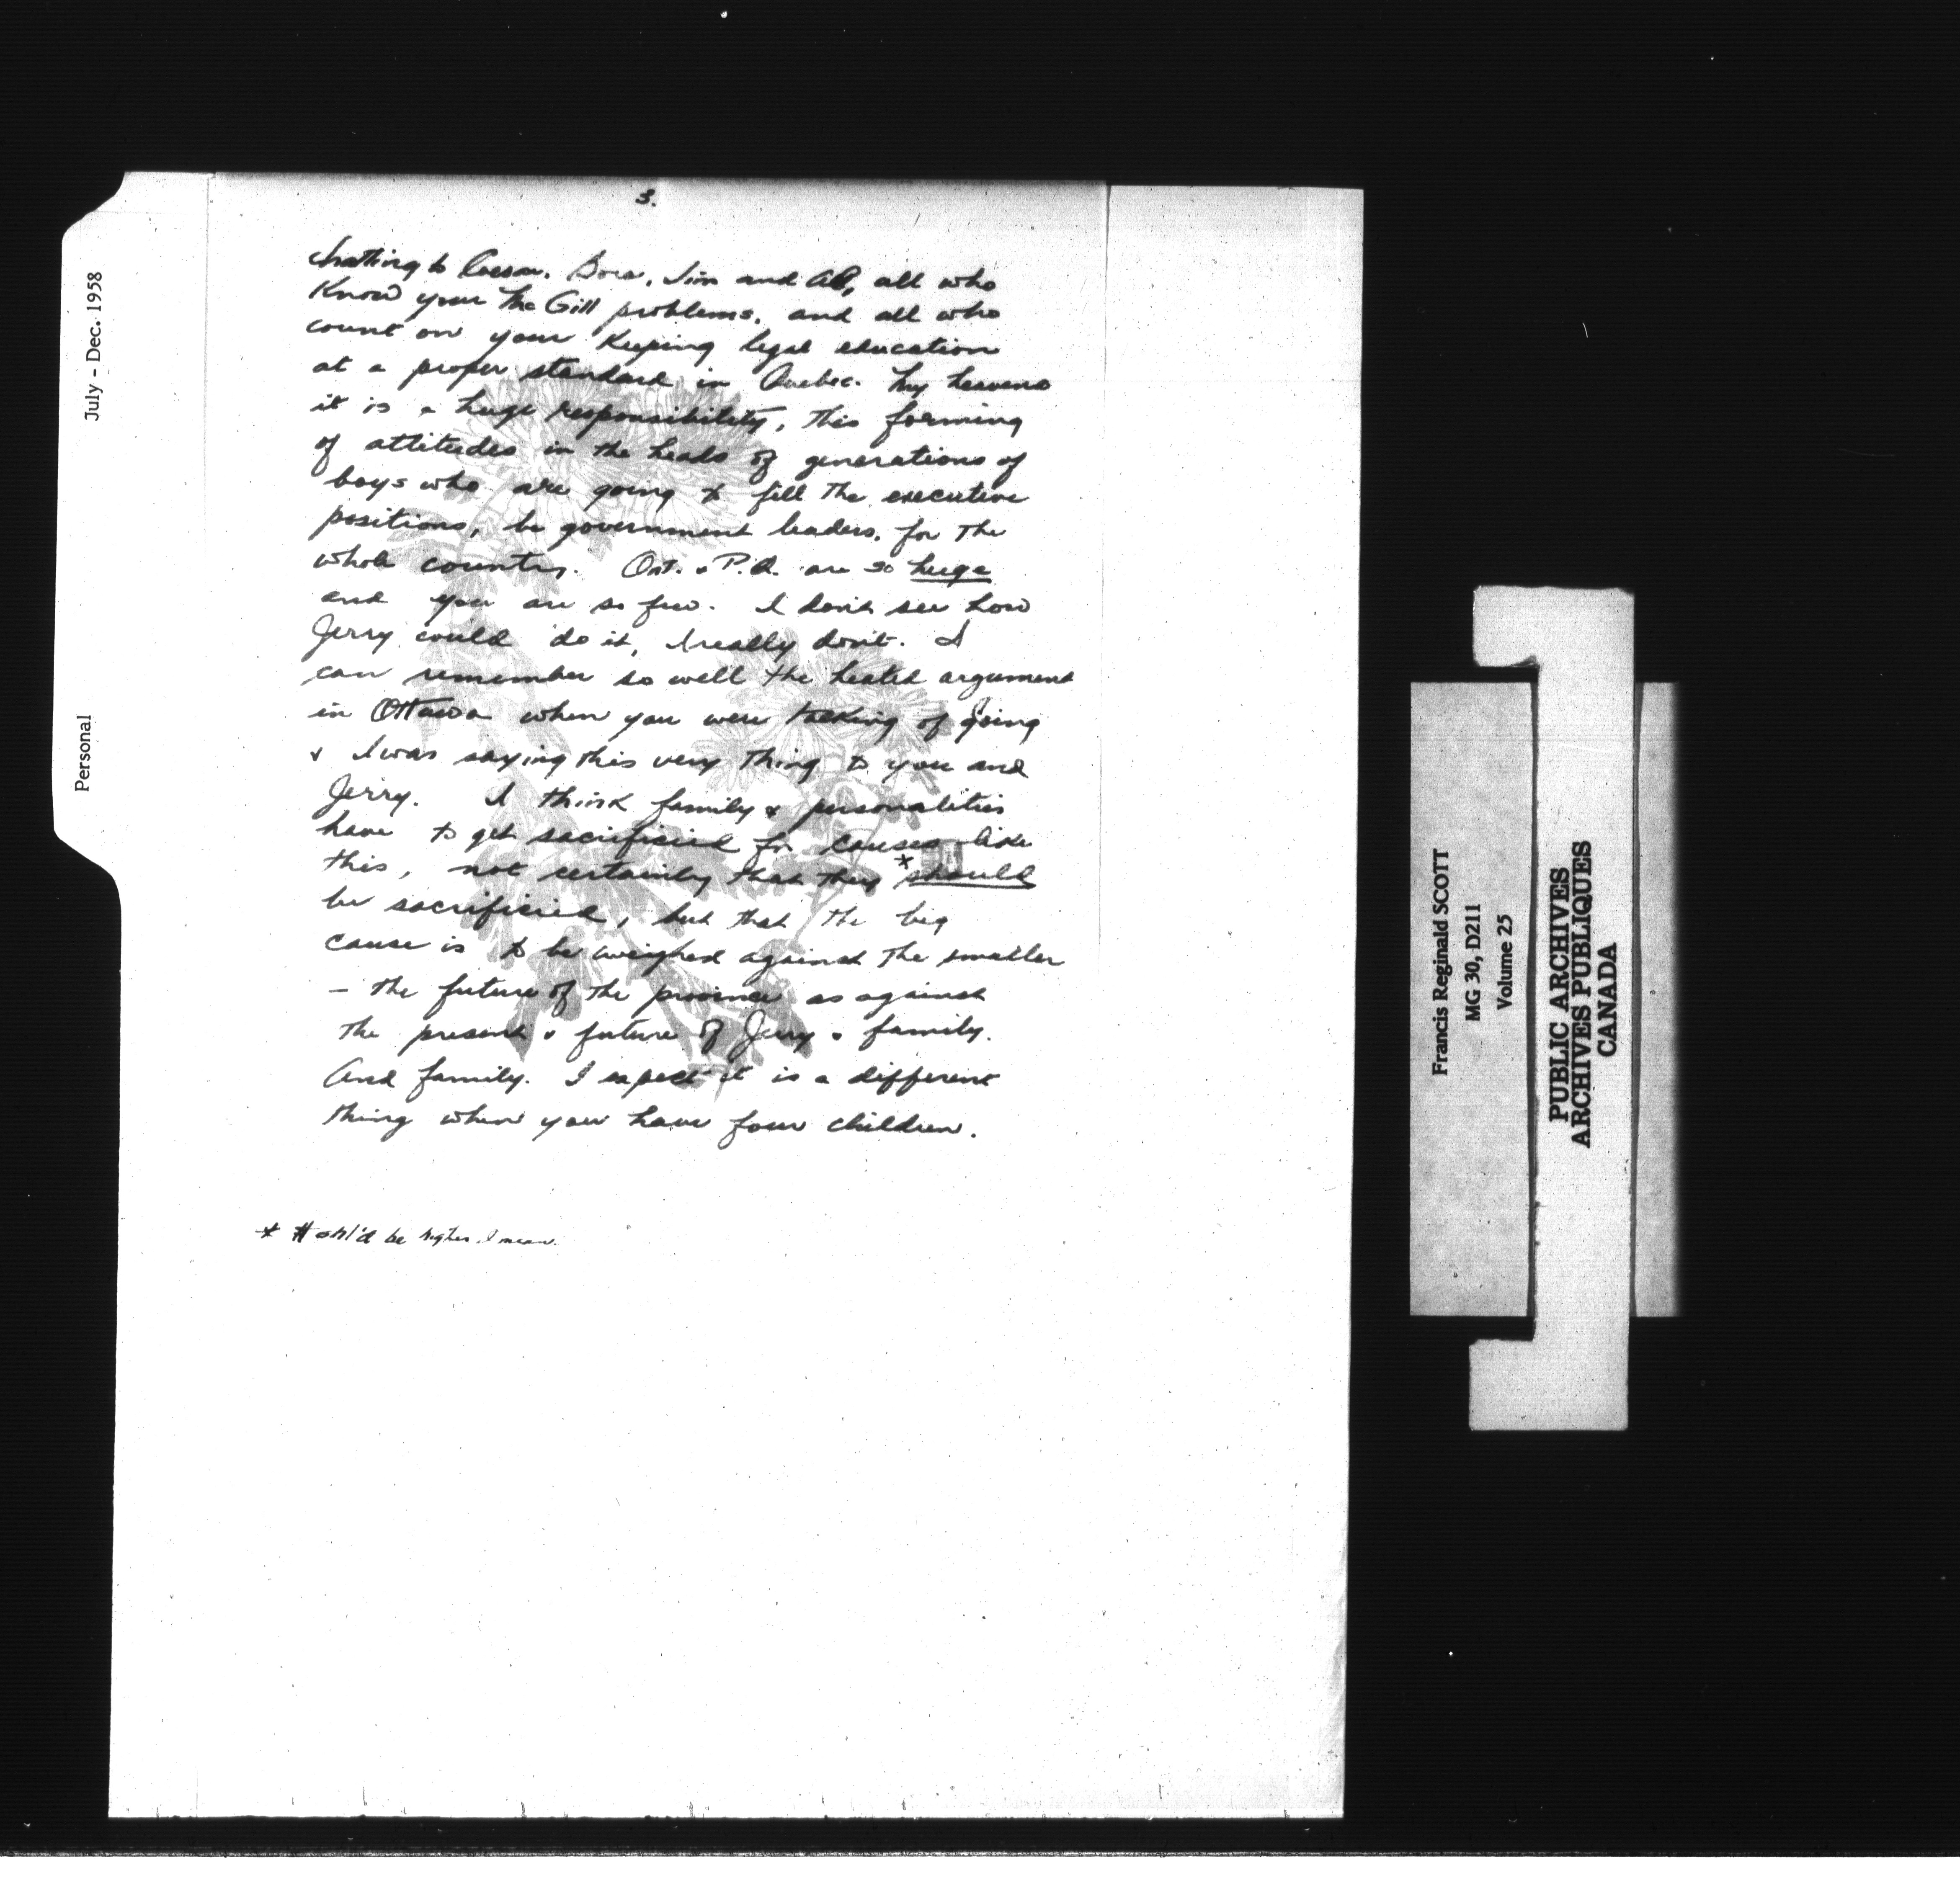 3.
chatting to Bora, Jim and Al, all who
know your McGill problems, and all who
count on your keeping legal education
at a proper standard in Quebec. My heavens
it is a huge responsibility, this forming
of attitudes in the heads of generations of
boys who are going to fill the executive
positions, be government leaders, for the
whole country. Ont. & P.Q. are so huge
and you are so few. I don't see how
Jerry could do it, I really don't. I
can remember so well the heated argument
in Ottawa when you were talking of going
& I was saying this very thing to you and
Jerry. I think family & personalities
have to get sacrificed for causes like
this, not certainly that they * should
be sacrificed, but that the big
cause is to be weighed against the smaller
- the future of the province as against
the present & future of Jerry & family.
And family. I expect it is a different
thing when you have four children.
* be higher, I mean.
July - Dec. 1958
Personal
Francis Reginald SCOTT
MG 30, D211
Volume 25
PUBLIC ARCHIVES
ARCHIVES PUBLIQUES
CANADA